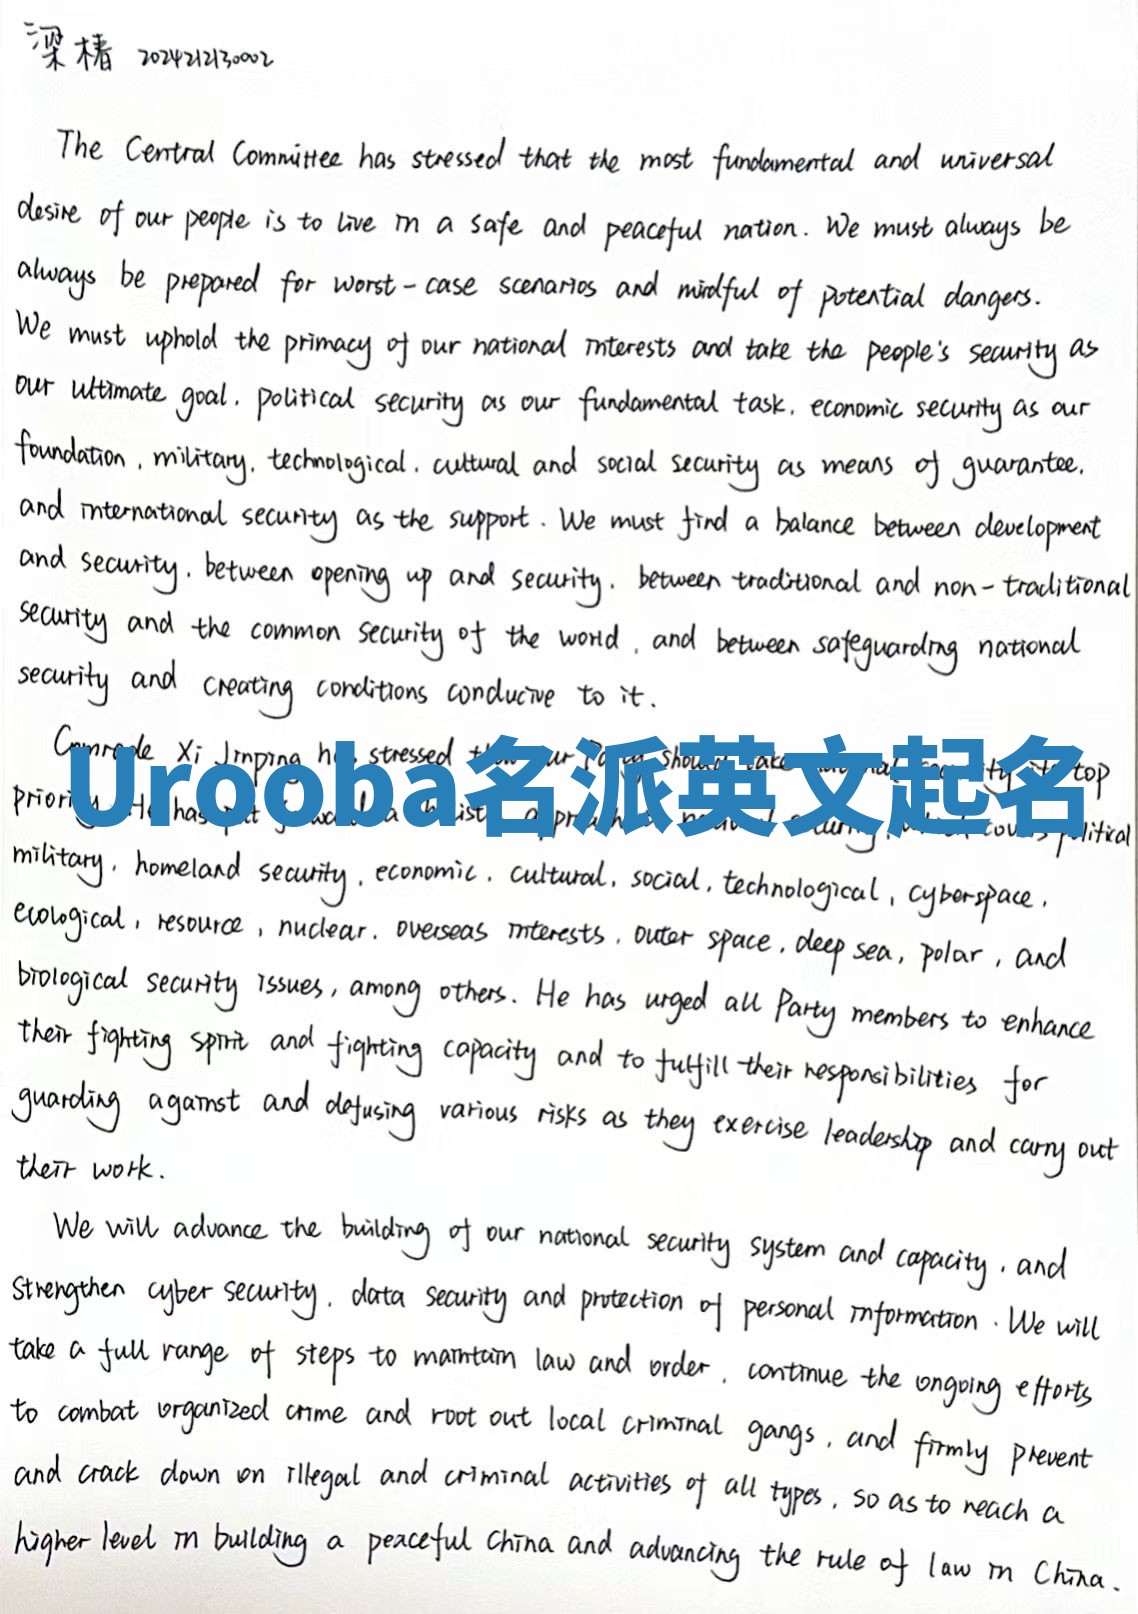 梁椿 2024212130002
The Central Committee has stressed that the most fundamental and universal
desire of our people is to live in a safe and peaceful nation. We must always be
always be prepared for worst-case scenarios and mindful of potential dangers.
We must uphold the primacy of our national interests and take the people's security as
our ultimate goal, political security as our fundamental task, economic security as our
foundation, military, technological, cultural and social security as means of guarantee,
and international security as the support. We must find a balance between development
and security, between opening up and security, between traditional and non-traditional
security and the common security of the world, and between safeguarding national
security and creating conditions conducive to it.
Comrade Xi Jinping has stressed that our Party should take its top
Urooba名派英文起名
priority. He has put a covers political
military, homeland security, economic, cultural, social, technological, cyberspace,
ecological, resource, nuclear, overseas interests, outer space, deep sea, polar, and
biological security issues, among others. He has urged all Party members to enhance
their fighting spirit and fighting capacity and to fulfill their responsibilities for
guarding against and defusing various risks as they exercise leadership and carry out
their work.
We will advance the building of our national security system and capacity, and
strengthen cyber security, data security and protection of personal information. We will
take a full range of steps to maintain law and order, continue the ongoing efforts
to combat organized crime and root out local criminal gangs, and firmly prevent
and crack down on illegal and criminal activities of all types, so as to reach a
higher level in building a peaceful China and advancing the rule of law in China.